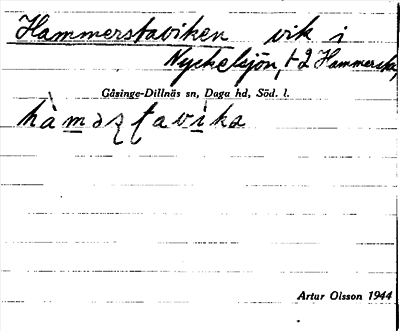 Hammerstaviken vik i
Nyckelsjön, t 2 Hammersta,
Gåsinge-Dillnäs sn, Daga hd, Söd. l.
hàməʂtavika
Artur Olsson 1944